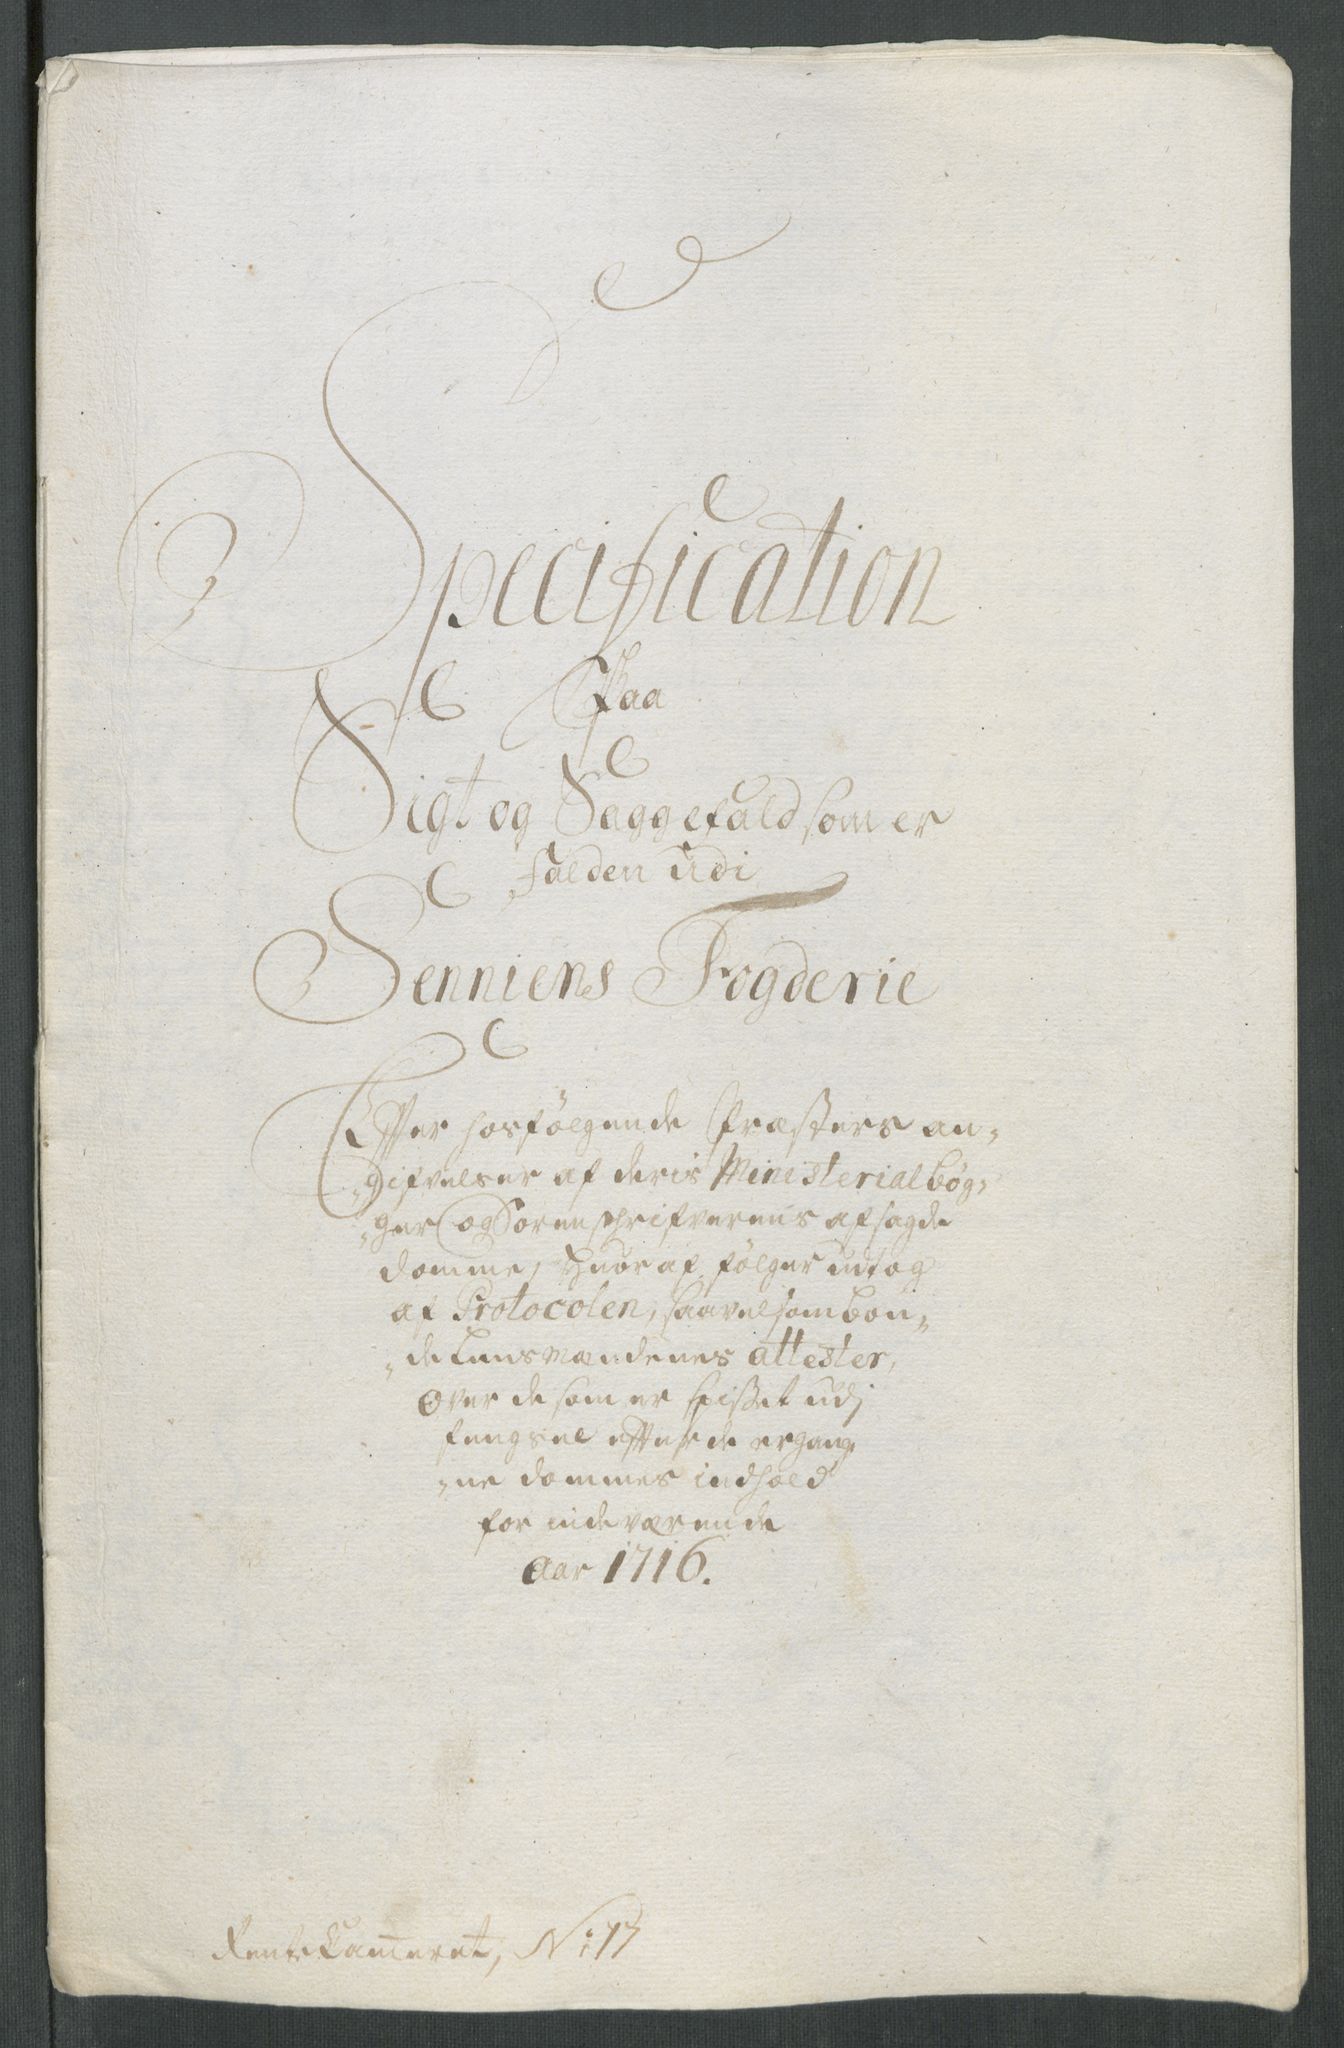 Specification
Paa
Sigt og Saggefald som er
falden udi
Senniens Fogderie
Efter hosfølgende Præsters an-
-gifvelser af deris Ministerial bøg-
-ger og Sorenschrifverens afsagde
domme, huor af følger udtog
af Protocolen, saavelsom bon-
-de Lensmændenes attester,
over de som er spiset udj
fengsel efter de ergang-
-ne dommes indhold
for indeværende
Aar 1716.
Rentekameret, No: 17